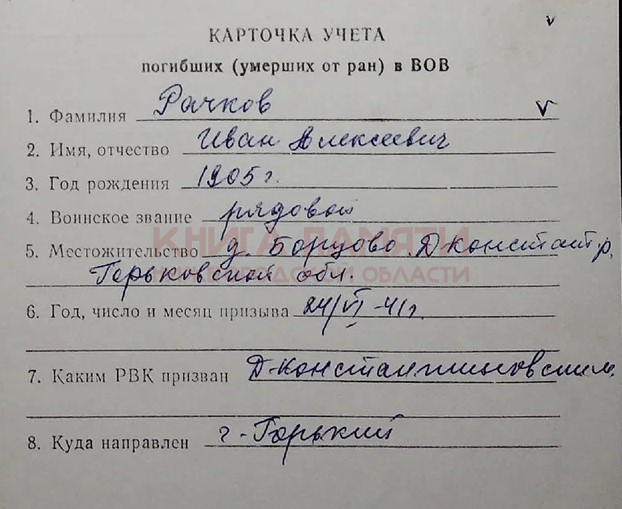 КАРТОЧКА УЧЕТА
погибших (умерших от ран) в ВОВ
1. Фамилия Рачков V
2. Имя, отчество Иван Алексеевич
3. Год рождения 1905 г.
4. Воинское звание рядовой
КНИГА ПАМЯТИ
5. Местожительство д. Борцово, Дконстант р,
Горьковской обл.
ОБЛАСТИ
6. Год, число и месяц призыва 24/VI-41 г.
7. Каким РВК призван Д-константиновским
8. Куда направлен г-Горький